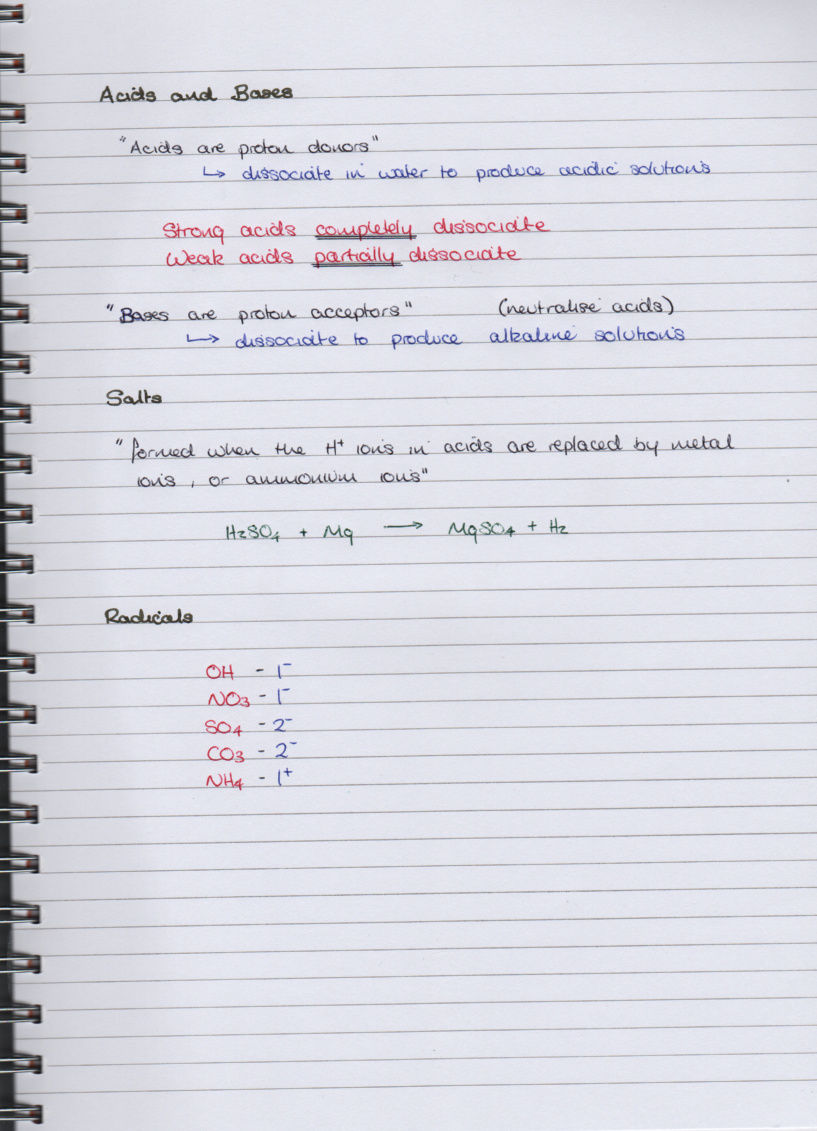 Acids and Bases
"Acids are proton donors"
↳ dissociate in water to produce acidic solutions
Strong acids completely dissociate
Weak acids partially dissociate
"Bases are proton acceptors" (neutralise acids)
↳ dissociate to produce alkaline solutions
Salts
"formed when the H⁺ ions in acids are replaced by metal
ions, or ammonium ions"
H₂SO₄ + Mg → MgSO₄ + H₂
Radicals
OH - 1⁻
NO₃ - 1⁻
SO₄ - 2⁻
CO₃ - 2⁻
NH₄ - 1⁺